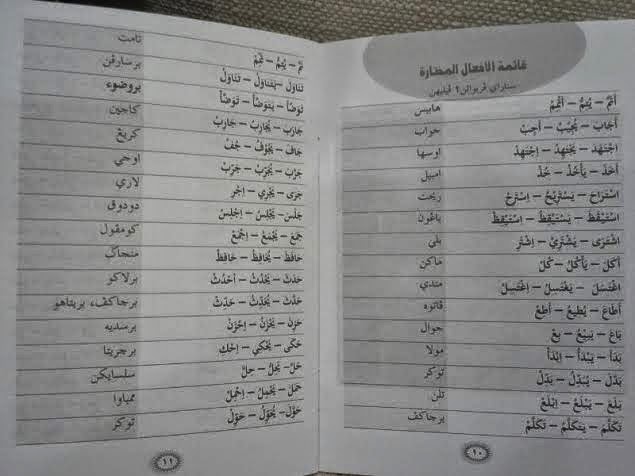 قائمة الأفعال المختارة
سناراي ڤربواتن٢ ڤيليهن
أَتَمَّ – يُتِمُّ – أَتْمِمْ هابيس
أَجَابَ – يُجِيْبُ – أَجِبْ جواب
اجْتَهَدَ – يَجْتَهِدُ – اِجْتَهِدْ اوسها
أَخَذَ – يَأْخُذُ – خُذْ امبيل
اسْتَرَاحَ – يَسْتَرِيْحُ – اِسْتَرِحْ ريحت
اسْتَيْقَظَ – يَسْتَيْقِظُ – اسْتَيْقِظْ باڠون
اشْتَرَى – يَشْتَرِيْ – اِشْتَرِ بلي
أَكَلَ – يَأْكُلُ – كُلْ ماكن
اغْتَسَلَ – يَغْتَسِلُ – اِغْتَسِلْ مندي
أَطَاعَ – يُطِيعُ – أَطِعْ ڤاتوه
بَاعَ – يَبِيْعُ – بِعْ جوال
بَدَأَ – يَبْدَأُ – اِبْدَأْ مولا
بَدَّلَ – يُبَدِّلُ – بَدِّلْ توكر
بَلَعَ – يَبْلَعُ – اِبْلَعْ تلن
تَكَلَّمَ – يَتَكَلَّمُ – تَكَلَّمْ برچاكڤ
١٠
تَمَّ – يُتِمُّ – تَمِّمْ تامت
تَنَاوَلَ – يَتَنَاوَلُ – تَنَاوَلْ برسارڤن
تَوَضَّأَ – يَتَوَضَّأُ – تَوَضَّأْ بروضوء
جَارَبَ – يُجَارِبُ – جَارِبْ
جَافَ – يَجُوْفُ – جُفْ كريڠ
جَرَّبَ – يُجَرِّبُ – جَرِّبْ اوجي
جَرَى – يَجْرِي – اِجْرِ لاري
جَلَسَ – يَجْلِسُ – اِجْلِسْ دودوق
جَمَعَ – يَجْمَعُ – اِجْمَعْ كومڤول
حَافَظَ – يُحَافِظُ – حَافِظْ منجاڬ
حَدَثَ – يَحْدُثُ – اُحْدُثْ برلاكو
حَدَّثَ – يُحَدِّثُ – حَدِّثْ برچاكڤ، بريتاهو
حَزِنَ – يَحْزَنُ – اِحْزَنْ برسديه
حَكَى – يَحْكِي – اِحْكِ برچريتا
حَلَّ – يَحُلُّ – حِلَّ سلسايكن
حَمَلَ – يَحْمِلُ – اِحْمِلْ ممباوا
حَوَّلَ – يُحَوِّلُ – حَوِّلْ توكر
١١